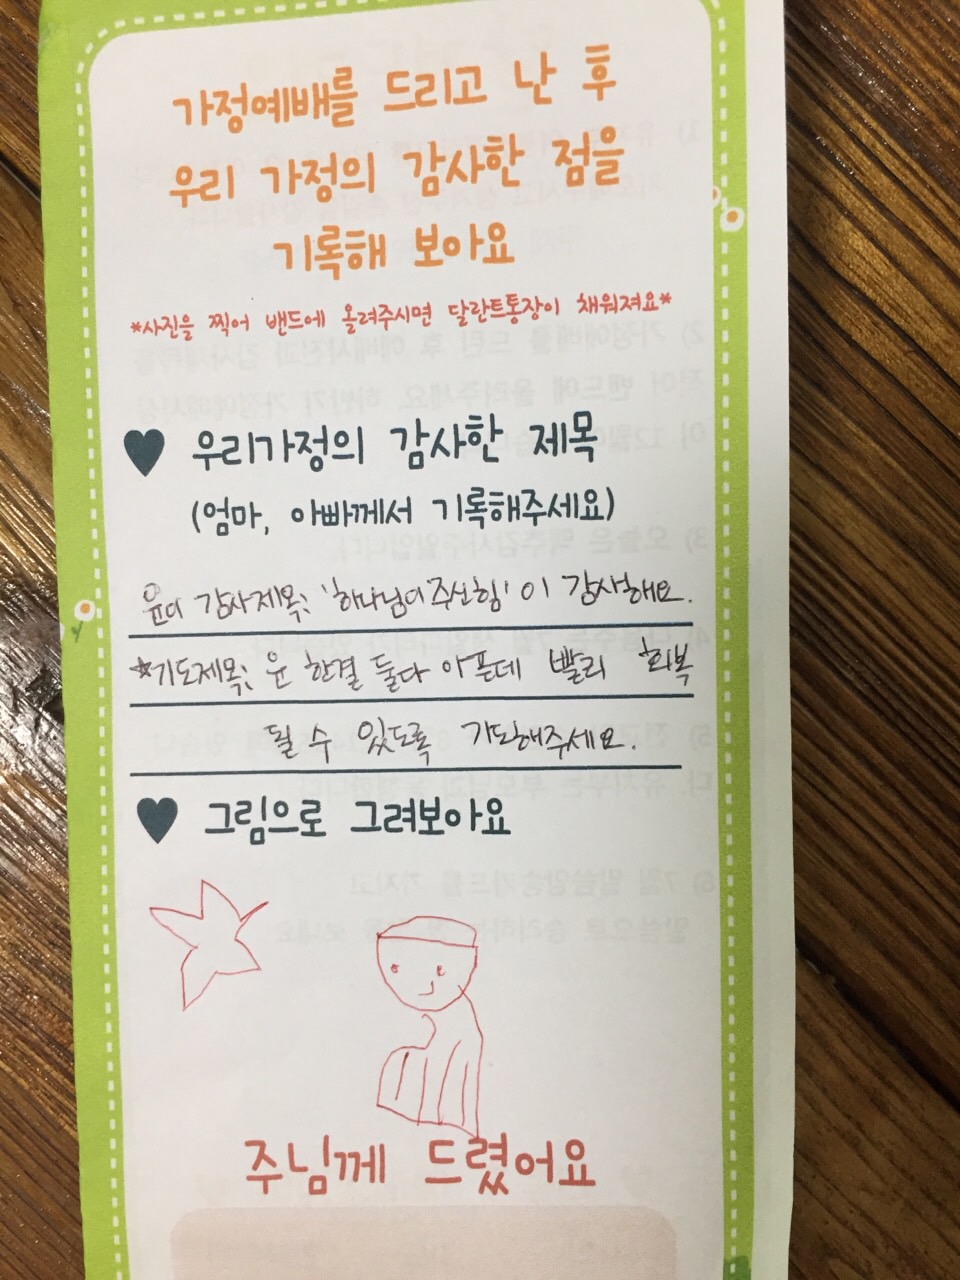 가정예배를 드리고 난 후
우리 가정의 감사한 점을
기록해 보아요
*사진을 찍어 밴드에 올려주시면 달란트통장이 채워져요*
♥ 우리가정의 감사한 제목
(엄마, 아빠께서 기록해주세요)
윤이 감사제목: '하나님이 주신 힘' 이 감사해요.
*기도제목: 윤 한결 둘다 아픈데 빨리 회복
될 수 있도록 기도해주세요.
♥ 그림으로 그려보아요
주님께 드렸어요